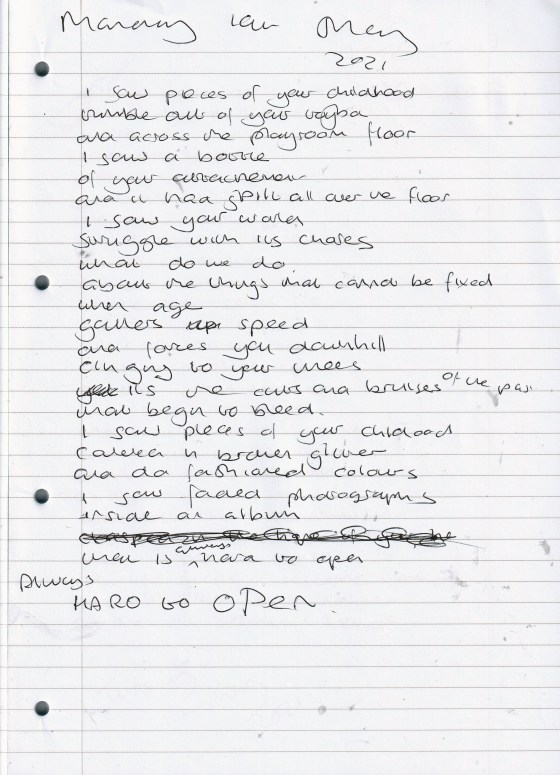 Monday 10th May
2021
I saw pieces of your childhood
tumble out of your toybox
and across the playroom floor
I saw a bottle
of your attachment
and it had spilt all over the floor
I saw your
struggle with its
what do we do
about the things that cannot be fixed
when age
gathers up speed
and forces you downhill
clinging to your knees
its the cuts and bruises of the past
that begin to bleed.
I saw pieces of your childhood
covered in broken glitter
and old fashioned colours
I saw faded photographs
inside an album
that is always hard to open
Always
HARD to OPEN